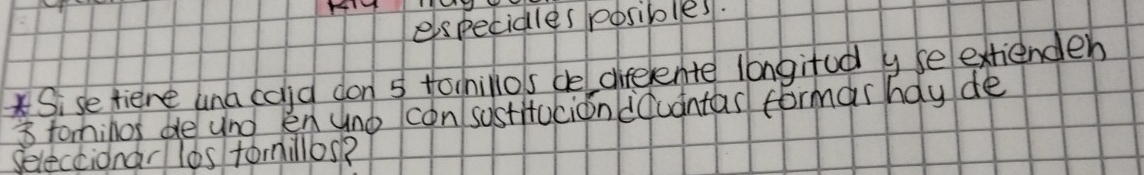 especiales posibles.
* Si se tiene una caja con 5 tornillos de diferente longitud y se extienden
3 tornillos de uno en uno con sustitución ¿Cuántas formas hay de
seleccionar los tornillos?